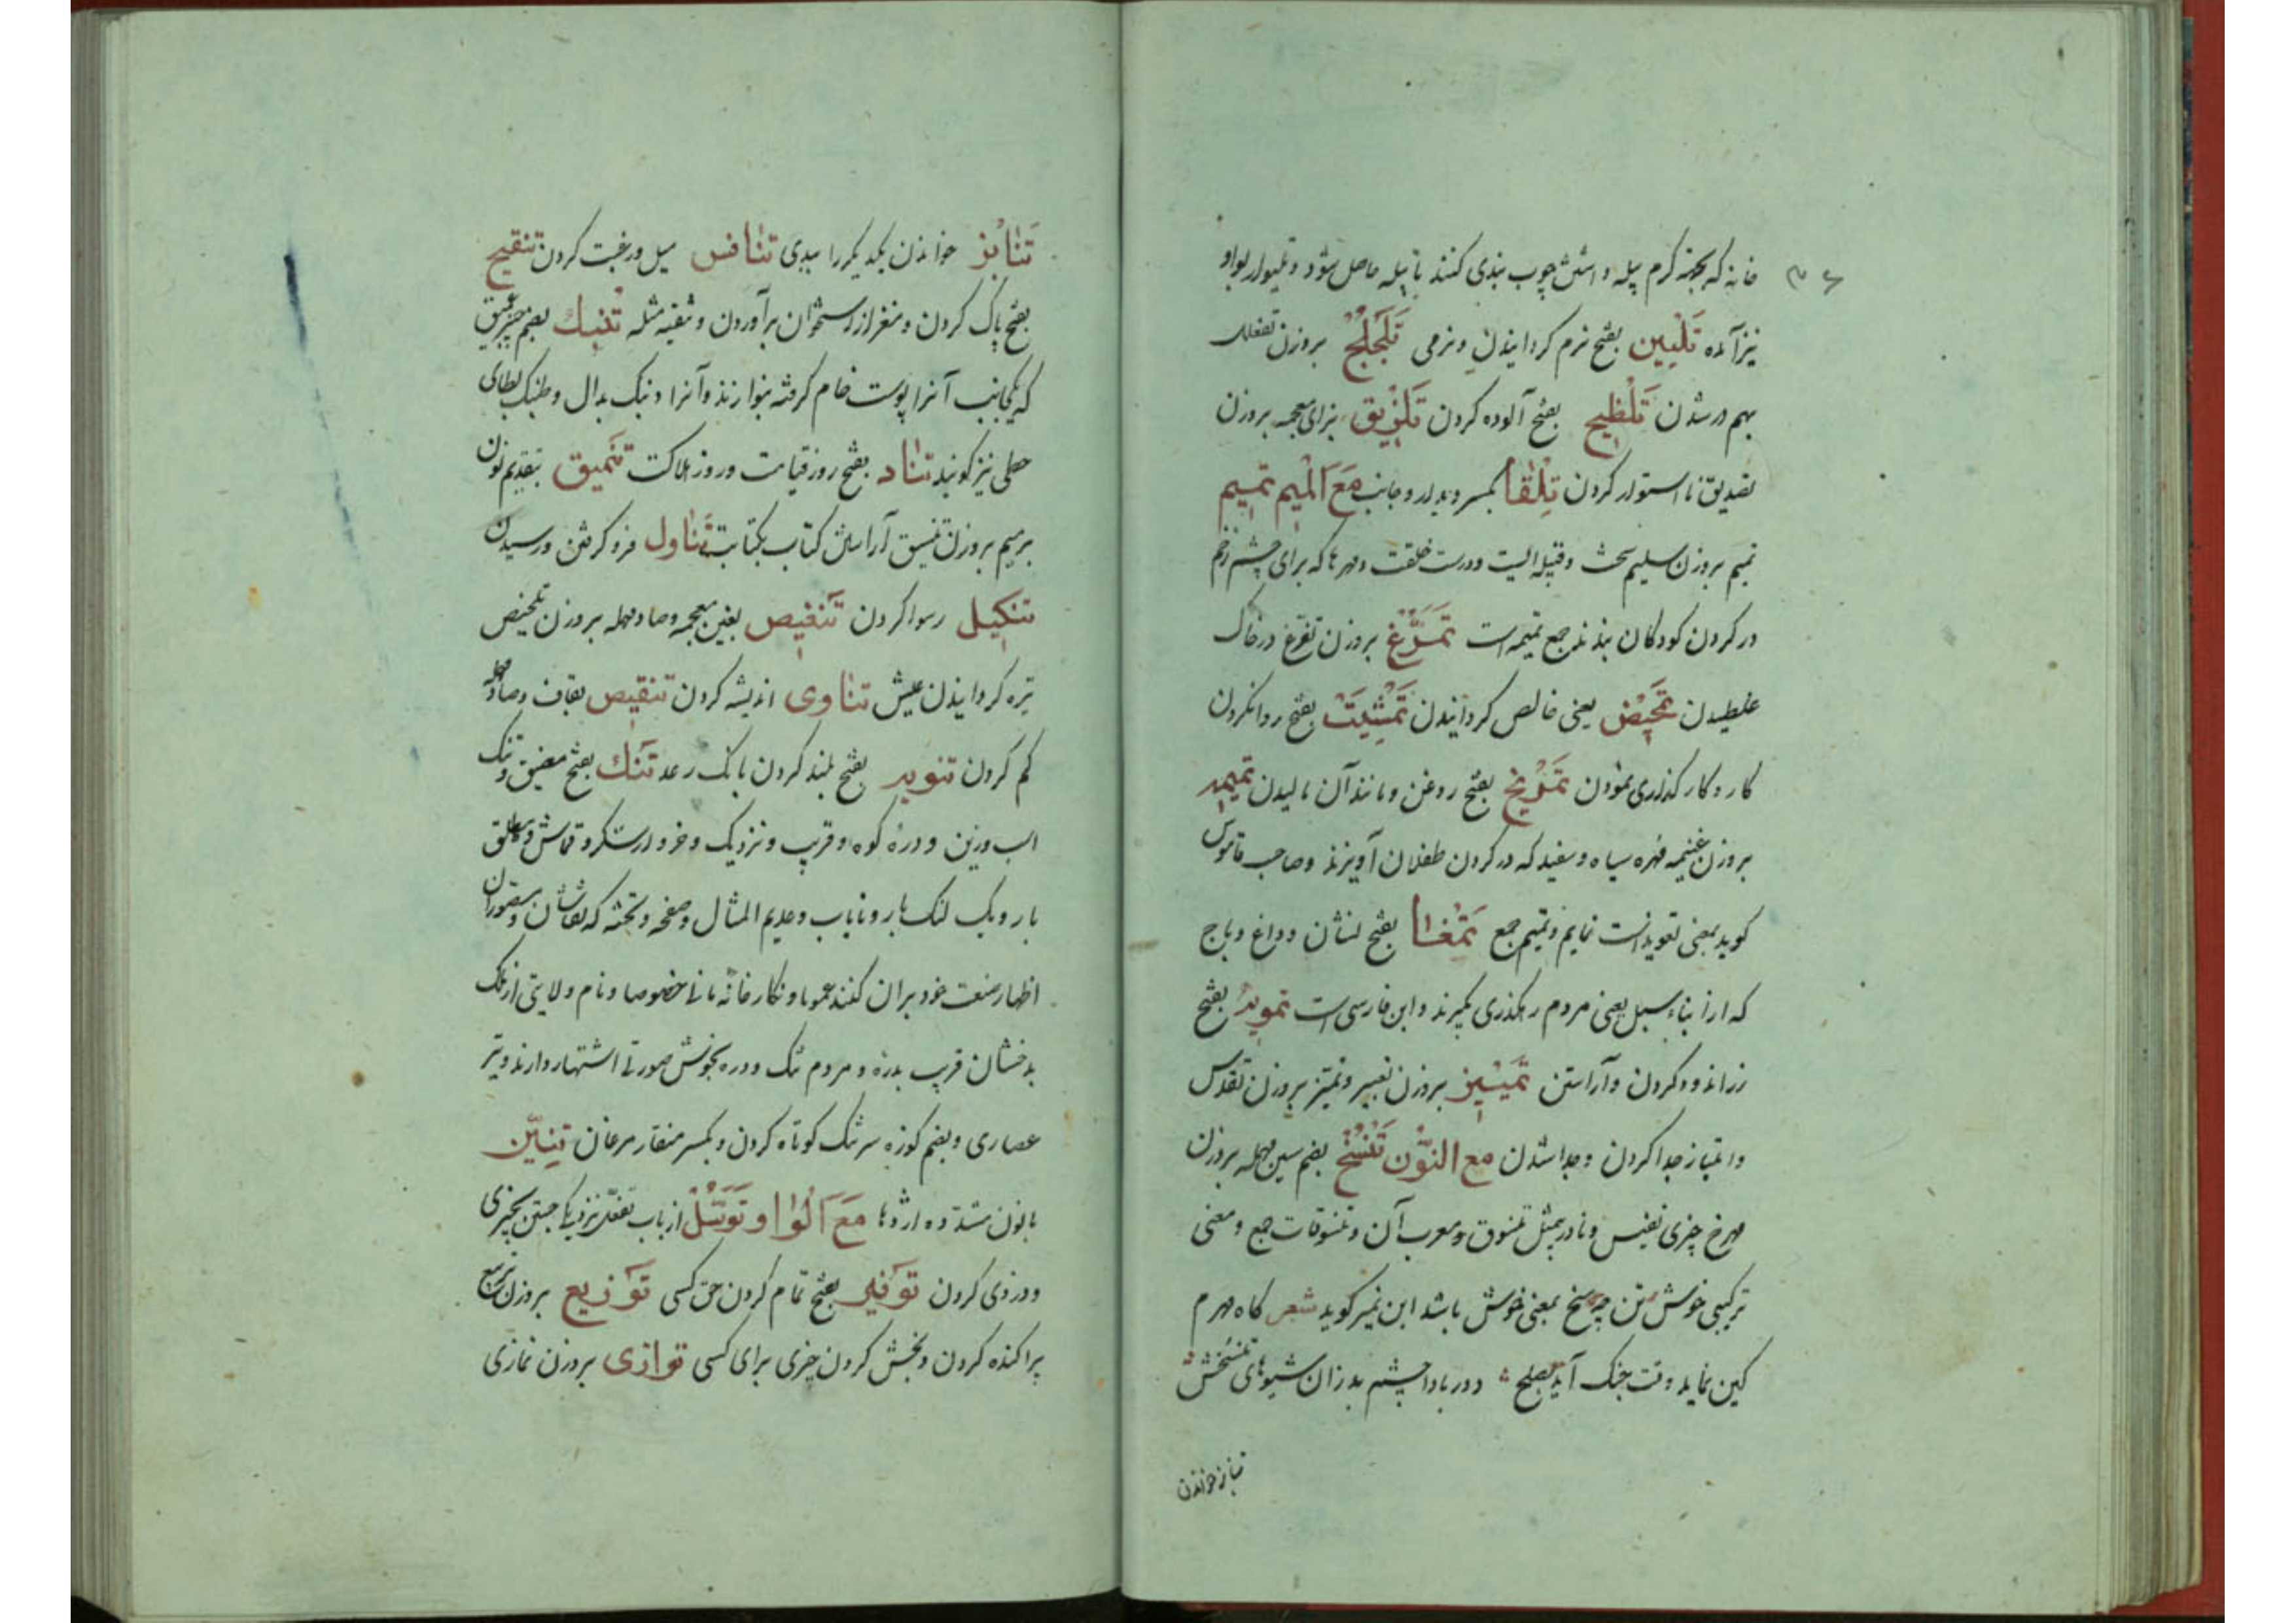 خانه که بجهته کرم پیله و اشش چوب بندی کنند تا پیله حاصل شود و تلیوار بواو
نیز آمده تَلْیین بفتح نرم کردانیدن و نرمی تَلَجْلُجْ بروزن تفعلل
بهم در شدن تَلْطیح بفتح آلوده کردن تَلْزیق بزای معجمه بروزن
تصدیق نا استوار کردن تِلْقا بکسر دیدار و جانب مَعَ المْیم تمیم
تمیم بروزن سلیم سخت و قبیله ایست و درست خلقت و مهرها که برای چشم زخم
در کردن کودکان بندند جمع تمیمه است تَمَرُّغ بروزن تفرغ در خاک
غلطیدن تمحیص یعنی خالص کردانیدن تَمْشِیَتْ بفتح روانکردن
کار و کارکذاری نمودن تَمْریخ بفتح روغن و مانند آن مالیدن تمیمه
بروزن غنیمه مهره سیاه و سفید که در کردن طفلان آویزند و صاحب قاموس
کوید بمعنی تعویذ است تمایم و تمیم جمع تَمْغا بفتح نشان و داغ و باج
که از ابناء سبیل یعنی مردم رهکذری بکیرند و این فارسی است تمویه بفتح
زر اندود کردن و آراستن تَمْییز بروزن تعبیر و تمیز بروزن تقدس
و امتیاز جدا کردن و جدا شدن مع النّون تَنْسُخ بضم سین مهمله بروزن
مهرخ چیزی نفیس و نادر بمثل تنسوق و معرب آن و تنسوقات جمع و معنی
ترکیبی خوش تن چه سخ بمعنی خوش باشد ابن یمین کوید شعر کاه مهرم
کین نماید وقت جنک آید بصلح دور بادا چشم بد زان شیوهای تنسخش
تنابز خواندن
تَنابُز خواندن یکدیکر را ببدی تنافس میل و رغبت کردن تنقیح
بفتح پاک کردن و مغز از استخوان برآوردن و تنقیه مثله تُنْبک بضم چیز عمیق
که یکجانب آنرا پوست خام کرفته بنوازند و آنرا دنبک بدال و طنبک بطای
حطی نیز کویند تناد بفتح روز قیامت و روز هلاکت تَنْمیق بتقدیم نون
بر میم بروزن تنسیق آرایش کتاب بکتابت تَناول فرو کرفتن و رسیدن
تنکیل رسوا کردن تنغیص بغین معجمه و صاد مهمله بروزن تلخیص
تیره کردانیدن عیش تناوی اندیشه کردن تنقیص بقاف و صاد مهمله
کم کردن تنوید بفتح بلند کردن بانک رعد تَنک بفتح مضیق و تنک
اسب و زین و دره کوه و قریب و نزدیک و خروار شکر و قماش و مطلق
بار و یک لنک بار و نایاب و عدیم المثال و صفحه و تخته که نقاشان و مصوران
اظهار صنعت خود بران کنند عموما و نکارخانه مانی خصوصا و نام ولایتی از ملک
بدخشان قریب بدره و مردم تنک و دره بخوش صورتی اشتهار دارند و تیر
عصاری و بضم کوزه سر تنک کوتاه کردن و بکسر منقار مرغان تِنّین
بانون مشدده اژدها مَعَ الْواو تَوَسُّلْ از باب تفعل نزدیکی جستن بچیزی
و دزدی کردن توفیر بفتح تمام کردن حق کسی تَوْزیع بروزن ترجیع
پراکنده کردن و بخش کردن چیزی برای کسی توازی بروزن نمازی